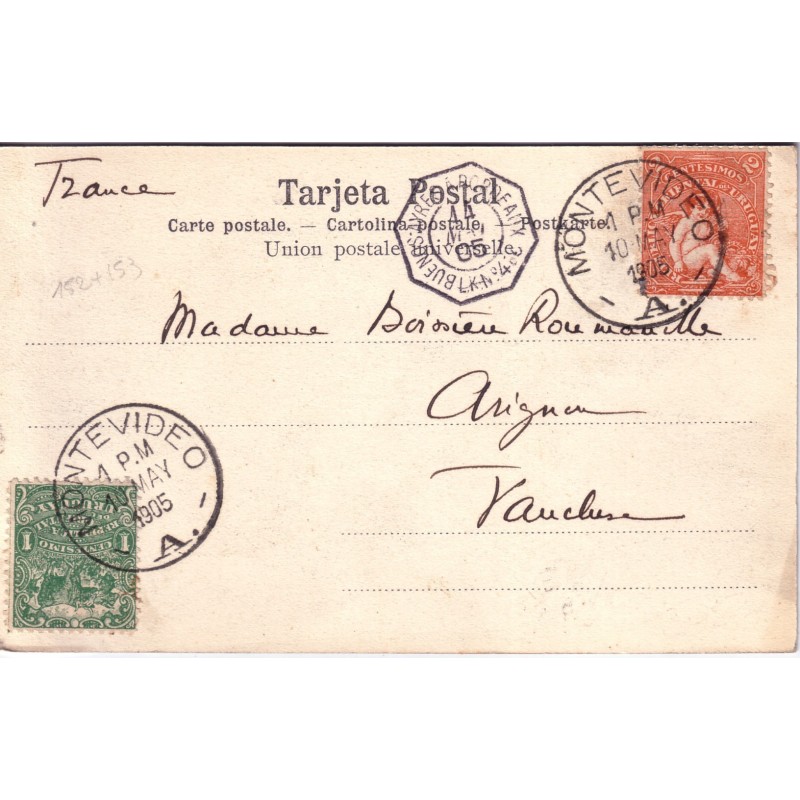 France
Tarjeta Postal
Carte postale. — Cartolina postale. — Postkarte.
Union postale universelle.
BUENOS-AYRES A BORDEAUX
14
MAI
05
LK Nº4
MONTEVIDEO
1 P.M
10-MAY
1905
A.
2 CENTESIMOS
ORIENTAL DEL URUGUAY
152+153
Madame Boissière Roumanille
Avignon
Vaucluse
MONTEVIDEO
1 P.M
MAY
1905
A.
1
CENTESIMO
URUGUAY